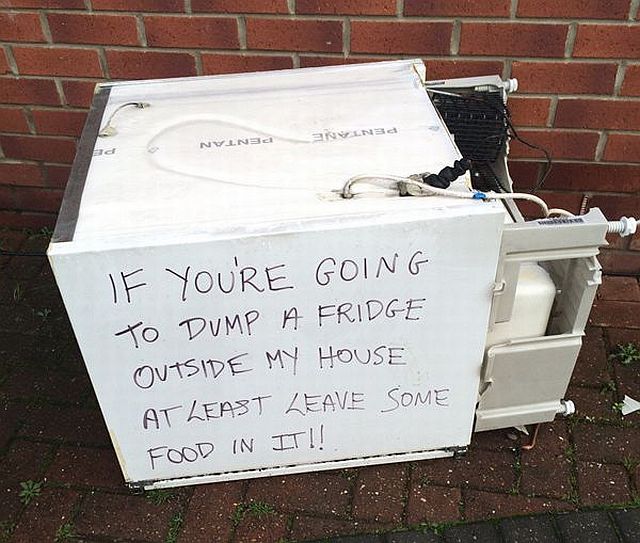 PENTANE
PENTAN
PE
IF YOU'RE GOING
TO DUMP A FRIDGE
OUTSIDE MY HOUSE
AT LEAST LEAVE SOME
FOOD IN IT!!